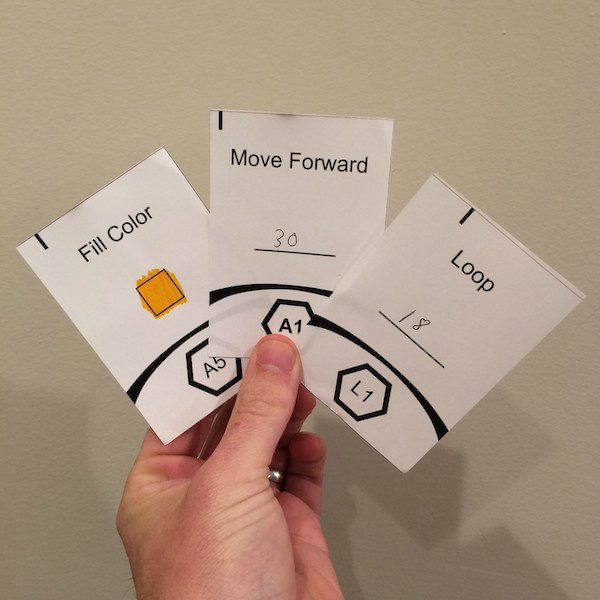 Fill Color
A5
Move Forward
30
A1
Loop
18
L1